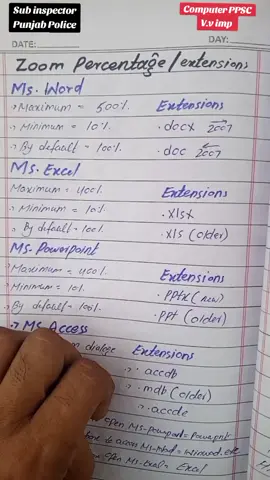 Sub inspector
Punjab Police
Computer PPSC
V.v imp
DATE:
DAY:
Zoom Percentage/extensions
Ms. Word
Maximum = 500%
Extensions
Minimum = 10%
.docx 2007
By default = 100%
.doc 2007
Ms. Excel
Maximum = 400%
Extensions
Minimum = 10%
.xlsx
By default = 100%
.xls (older)
Ms. Powerpoint
Maximum = 400%
Extensions
Minimum = 10%
.pptx (new)
By default = 100%
.ppt (older)
Ms. Access
dialoge
Extensions
.accdb
.mdb (older)
.accde
open Ms-
open Ms-Excel = Excel